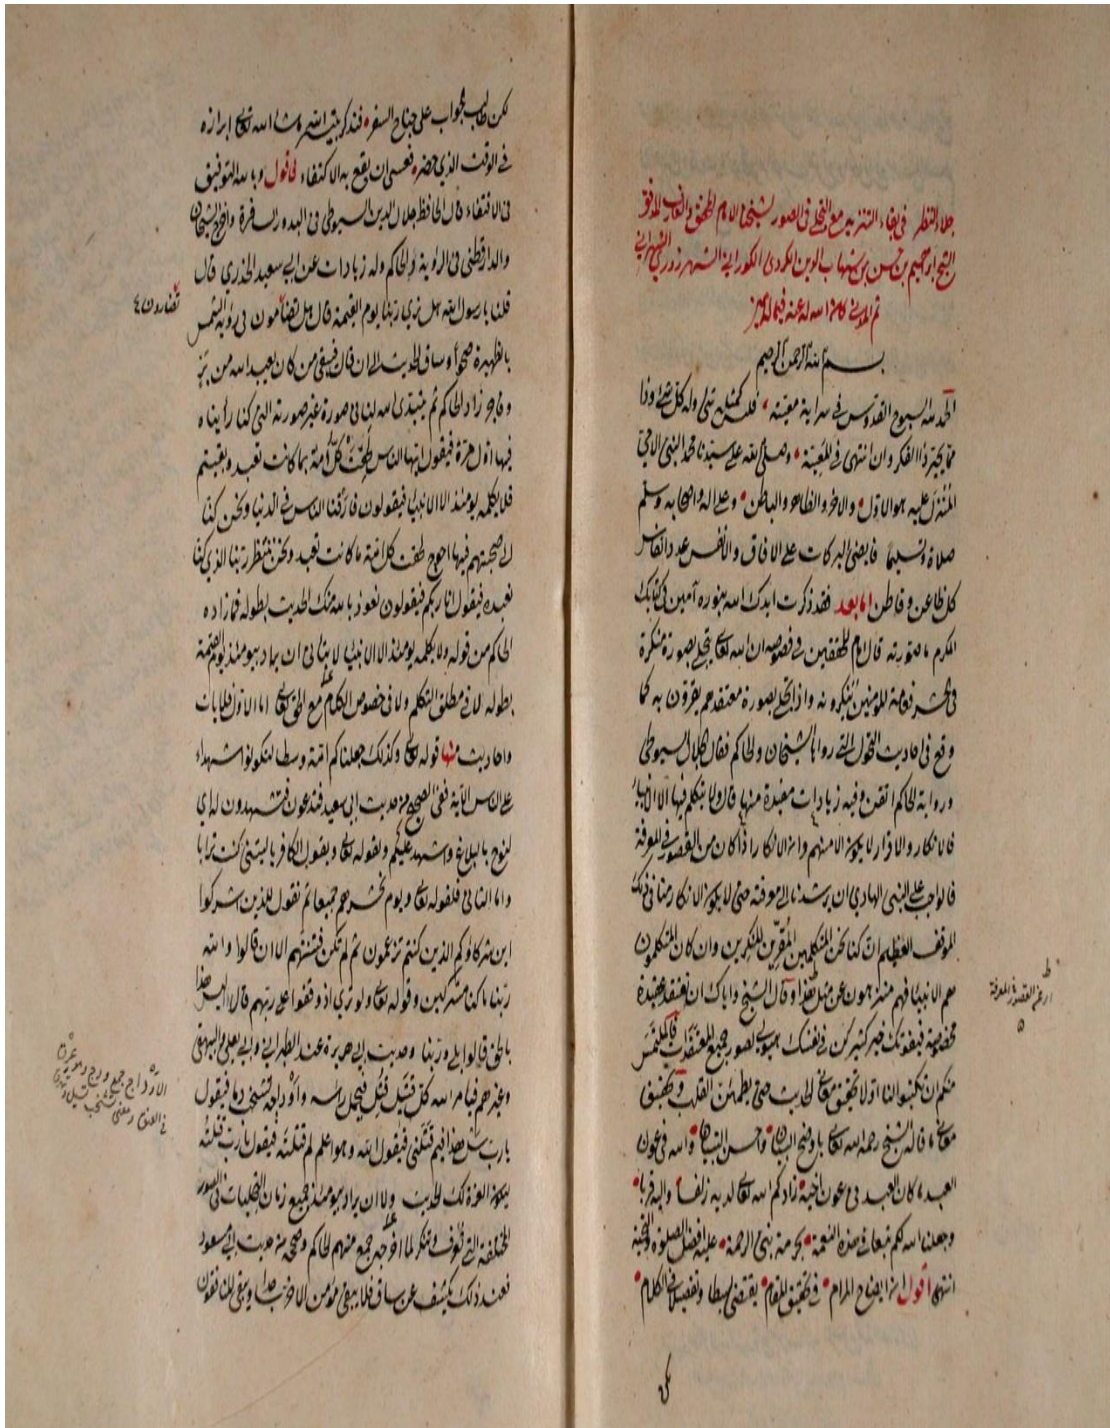 جلاء النظر في بقاء التنزيه مع التجلي في الصور لشيخنا الامام المحقق والعارف المدقق
الشيخ ابرهيم بن حسن بن شهاب الدين الكردي الكوراني الشهرزوري الشهراني
ثم المدني كان الله له عنه فيما له
بسم الله الرحمن الرحيم
الحمد لله السبوح القدوس في سراية معيته، فليس كمثله شيء وله كل شيء وذا
مما يحير ذا الفكر وان انتهى في المعية وصلى الله على سيدنا محمد النبي الامي
المنزل عليه هو الاول والاخر والظاهر والباطن وعلى اله واصحابه وسلم
صلاة وتسليما فايضي البركات على الافاق والانفس عدد انفاس
كل ظاعن وقاطن اما بعد فقد ذكرت ايدك الله بنوره آمين في كتابك
الكرم ما صورته قال امام المحققين في فصوصه ان الله تعالى يتجلى بصورة منكرة
في الحشر فعامة المؤمنين ينكرونه واذا تجلى بصورة معتقدهم يقرون به كما
وقع في احاديث التحول التي رواها الشيخان والحاكم فقال الجلال السيوطي
ورواية الحاكم اتقن وفيه زيادات مفيدة منها قال ولا يتكلم فيها الا الانبياء
فالانكار والاقرار لا يكون الا منهم وان الانكار اذا كان من القصور في المعرفة
فالواجب على النبي الهادي ان يرشدنا الى معرفته حتى لا يكون الانكار منا في ذلك
الموقف العظيم ان كنا نحن المتكلمين المقرين المنكرين وان كان المتكلمون
هم الانبياء فهم منزهون عن مثل هذا وقال الشيخ واياك ان تعتقد عقيدة
مخصوصة فيفوتك خير كثير كن في نفسك هيولى لصور جميع المعتقدات فالملتمس
منكم ان تكتبوا لنا اولا تحقيق معاني الحديث حتى يطمئن القلب وتحقيق
معاني ما قاله الشيخ رحمه الله تعالى باوضح البيان واحسن التبيان والله في عون
العبد ما كان العبد في عون اخيه زادكم الله تعالى لديه زلفا واليه قربا
وجعلنا الله لكم تبعا في هذه النعمة بحرمة نبي الرحمة عليه افضل الصلوة والتحية
انتهى اقول ان ايضاح المرام في تحقيق المقام يقتضي بسطا وتفصيلا في الكلام
اي من القصور في المعرفة
لكن
لكن طالب الجواب على جناح السفر فنذكر بتيسير الله ما شاء الله تعالى ابرازه
في الوقت الذي حضر فعسى ان يقع به الاكتفاء فاقول وبالله التوفيق
في الاقتفاء قال الحافظ جلال الدين السيوطي في البدور السافرة واخرج الشيخان
والدارقطني في الرؤية والحاكم وله زيادات عن ابي سعيد الخدري قال
قلنا يا رسول الله هل نرى ربنا يوم القيمة قال هل تضامون في رؤية الشمس
بالظهيرة صحوا وساق الحديث الى ان قال فيبقى من كان يعبد الله من بر
وفاجر زاد الحاكم ثم يتبدى الله لنا في صورة غير صورته التي كنا رأيناه
فيها اول مرة فيقول ايها الناس لحقت كل امة بما كانت تعبد وبقيتم
فلا يكلمه يومئذ الا الانبياء فيقولون فارقنا الناس في الدنيا ونحن كنا
الى صحبتهم فيها احوج لحقت كل امة ما كانت تعبد ونحن ننتظر ربنا الذي كنا
نعبده فيقول انا ربكم فيقولون نعوذ بالله منك الحديث بطوله فما زاده
الحاكم من قوله ولا يكلمه يومئذ الا الانبياء لا يتاتى ان يراد بيومئذ يوم القيمة
بطوله لا في مطلق التكلم ولا في خصوص الكلام مع الحق تعالى اما الاول فلايات
واحاديث منها قوله تعالى وكذلك جعلناكم امة وسطا لتكونوا شهداء
على الناس الآية ففي الصحيح من حديث ابي سعيد فتدعون فتشهدون له اي
لنوح بالبلاغ واشهد عليكم ولقوله تعالى ويقول الكافر يا ليتني كنت ترابا
واما الثاني فلقوله تعالى ويوم نحشرهم جميعا ثم نقول للذين اشركوا
اين شركاؤكم الذين كنتم تزعمون ثم لم تكن فتنتهم الا ان قالوا والله
ربنا ما كنا مشركين وقوله تعالى ولو ترى اذ وقفوا على ربهم قال اليس هذا
بالحق قالوا بلى وربنا وحديث ابي هريرة عند الطبراني وابي يعلى والبيهقي
وغيرهم فيامر الله كل قتيل قتل فيحمل راسه واوداجه تشخب دما فيقول
يا رب سل هذا فيم قتلني فيقول الله وهو اعلم لم قتلته فيقول يا رب قتلته
لتكون العزة لك الحديث ولا ان يراد بيومئذ جميع زمان التجليات في الصور
المختلفة التي تعرف وتنكر لما اخرجه جمع منهم الحاكم وصححه من حديث ابن مسعود
فعند ذلك يكشف عن ساق فلا يبقى مؤمن الا خر ساجدا ويبقى المنافقون
تضارون
الاوداج جمع ودج وهو عرق
في العنق ومعنى تشخب تسيل